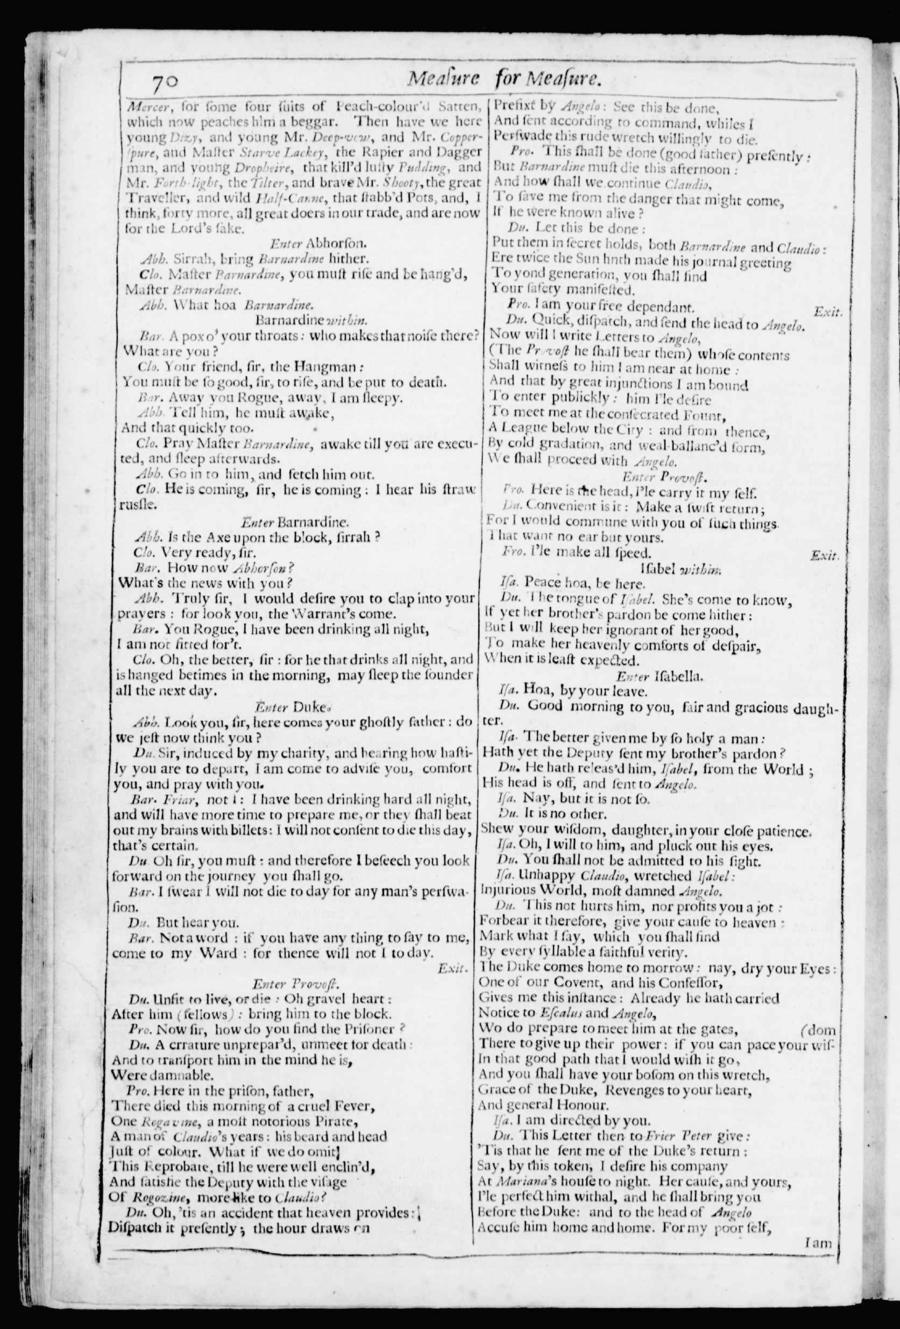 70
Meaſure for Meaſure.
Mercer, for ſome four ſuits of Peach-colour'd Satten,
which now peaches him a beggar. Then have we here
young Dizy, and young Mr. Deep-vow, and Mr. Copper-
ſpure, and Maſter Starve Lackey, the Rapier and Dagger
man, and young Dropheire, that kill'd luſty Pudding, and
Mr. Forth-light, the Tilter, and brave Mr. Shooty, the great
Traveller, and wild Half-Canne, that ſtabb'd Pots, and, I
think, forty more, all great doers in our trade, and are now
for the Lord's ſake.
Enter Abhorſon.
Abh. Sirrah, bring Barnardine hither.
Clo. Maſter Barnardine, you muſt riſe and be hang'd,
Maſter Barnardine.
Abh. What hoa Barnardine.
Barnardine within.
Bar. A pox o' your throats: who makes that noiſe there?
What are you?
Clo. Your friend, ſir, the Hangman:
You muſt be ſo good, ſir, to riſe, and be put to death.
Bar. Away you Rogue, away, I am ſleepy.
Abh. Tell him, he muſt awake,
And that quickly too.
Clo. Pray Maſter Barnardine, awake till you are execu-
ted, and ſleep afterwards.
Abh. Go in to him, and fetch him out.
Clo. He is coming, ſir, he is coming: I hear his ſtraw
ruſſle.
Enter Barnardine.
Abh. Is the Axe upon the block, ſirrah?
Clo. Very ready, ſir.
Bar. How now Abhorſon?
What's the news with you?
Abh. Truly ſir, I would deſire you to clap into your
prayers: for look you, the Warrant's come.
Bar. You Rogue, I have been drinking all night,
I am not fitted for't.
Clo. Oh, the better, ſir: for he that drinks all night, and
is hanged betimes in the morning, may ſleep the ſounder
all the next day.
Enter Duke.
Abh. Look you, ſir, here comes your ghoſtly father: do
we jeſt now think you?
Du. Sir, induced by my charity, and hearing how haſti-
ly you are to depart, I am come to adviſe you, comfort
you, and pray with you.
Bar. Friar, not I: I have been drinking hard all night,
and will have more time to prepare me, or they ſhall beat
out my brains with billets: I will not conſent to die this day,
that's certain.
Du. Oh ſir, you muſt: and therefore I beſeech you look
forward on the journey you ſhall go.
Bar. I ſwear I will not die to day for any man's perſwa-
ſion.
Du. But hear you.
Bar. Not a word: if you have any thing to ſay to me,
come to my Ward: for thence will not I to day.
Exit.
Enter Provoſt.
Du. Unfit to live, or die: Oh gravel heart:
After him (fellows): bring him to the block.
Pro. Now ſir, how do you find the Priſoner?
Du. A crrature unprepar'd, unmeet for death:
And to tranſport him in the mind he is,
Were damnable.
Pro. Here in the priſon, father,
There died this morning of a cruel Fever,
One Rogavine, a moſt notorious Pirate,
A man of Claudio's years: his beard and head
Juſt of colour. What if we do omit
This Reprobate, till he were well enclin'd,
And ſatisfie the Deputy with the viſage
Of Rogozine, more like to Claudio?
Du. Oh, 'tis an accident that heaven provides:
Diſpatch it preſently; the hour draws on
Prefixt by Angelo: See this be done,
And ſent according to command, whiles I
Perſwade this rude wretch willingly to die.
Pro. This ſhall be done (good father) preſently:
But Barnardine muſt die this afternoon:
And how ſhall we continue Claudio,
To ſave me from the danger that might come,
If he were known alive?
Du. Let this be done:
Put them in ſecret holds, both Barnardine and Claudio:
Ere twice the Sun hnth made his journal greeting
To yond generation, you ſhall find
Your ſafety manifeſted.
Pro. I am your free dependant.
Exit.
Du. Quick, diſpatch, and ſend the head to Angelo.
Now will I write Letters to Angelo,
(The Provoſt he ſhall bear them) whoſe contents
Shall witneſs to him I am near at home:
And that by great injunctions I am bound
To enter publickly: him I'le deſire
To meet me at the conſecrated Fount,
A League below the City: and from thence,
By cold gradation, and weal-ballanc'd form,
We ſhall proceed with Angelo.
Enter Provoſt.
Pro. Here is the head, I'le carry it my ſelf.
Du. Convenient is it: Make a ſwift return;
For I would commune with you of ſuch things
That want no ear but yours.
Pro. I'le make all ſpeed.
Exit.
Iſabel within.
Iſa. Peace hoa, be here.
Du. The tongue of Iſabel. She's come to know,
If yet her brother's pardon be come hither:
But I will keep her ignorant of her good,
To make her heavenly comforts of deſpair,
When it is leaſt expected.
Enter Iſabella.
Iſa. Hoa, by your leave.
Du. Good morning to you, fair and gracious daugh-
ter.
Iſa. The better given me by ſo holy a man:
Hath yet the Deputy ſent my brother's pardon?
Du. He hath releas'd him, Iſabel, from the World;
His head is off, and ſent to Angelo.
Iſa. Nay, but it is not ſo.
Du. It is no other.
Shew your wiſdom, daughter, in your cloſe patience.
Iſa. Oh, I will to him, and pluck out his eyes.
Du. You ſhall not be admitted to his ſight.
Iſa. Unhappy Claudio, wretched Iſabel:
Injurious World, moſt damned Angelo.
Du. This not hurts him, nor profits you a jot:
Forbear it therefore, give your cauſe to heaven:
Mark what I ſay, which you ſhall find
By every ſyllable a faithful verity.
The Duke comes home to morrow: nay, dry your Eyes:
One of our Covent, and his Confeſſor,
Gives me this inſtance: Already he hath carried
Notice to Eſcalus and Angelo,
Wo do prepare to meet him at the gates, (dom
There to give up their power: if you can pace your wiſ-
In that good path that I would wiſh it go,
And you ſhall have your boſom on this wretch,
Grace of the Duke, Revenges to your heart,
And general Honour.
Iſa. I am directed by you.
Du. This Letter then to Frier Peter give:
'Tis that he ſent me of the Duke's return:
Say, by this token, I deſire his company
At Mariana's houſe to night. Her cauſe, and yours,
I'le perfect him withal, and he ſhall bring you
Before the Duke: and to the head of Angelo
Accuſe him home and home. For my poor ſelf,
I am